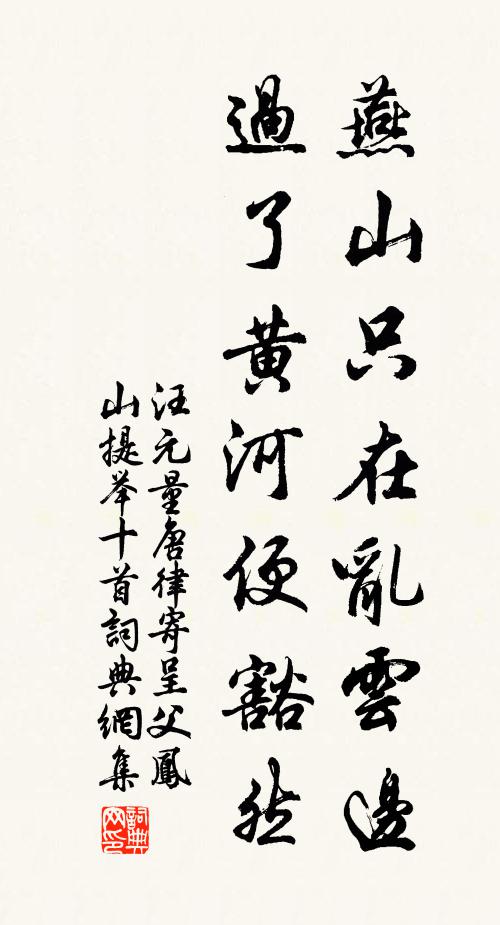 燕山只在亂雲邊
過了黄河便豁然
汪元量唐律寄呈父鳳
山提举十首詞典網集
詞典网印